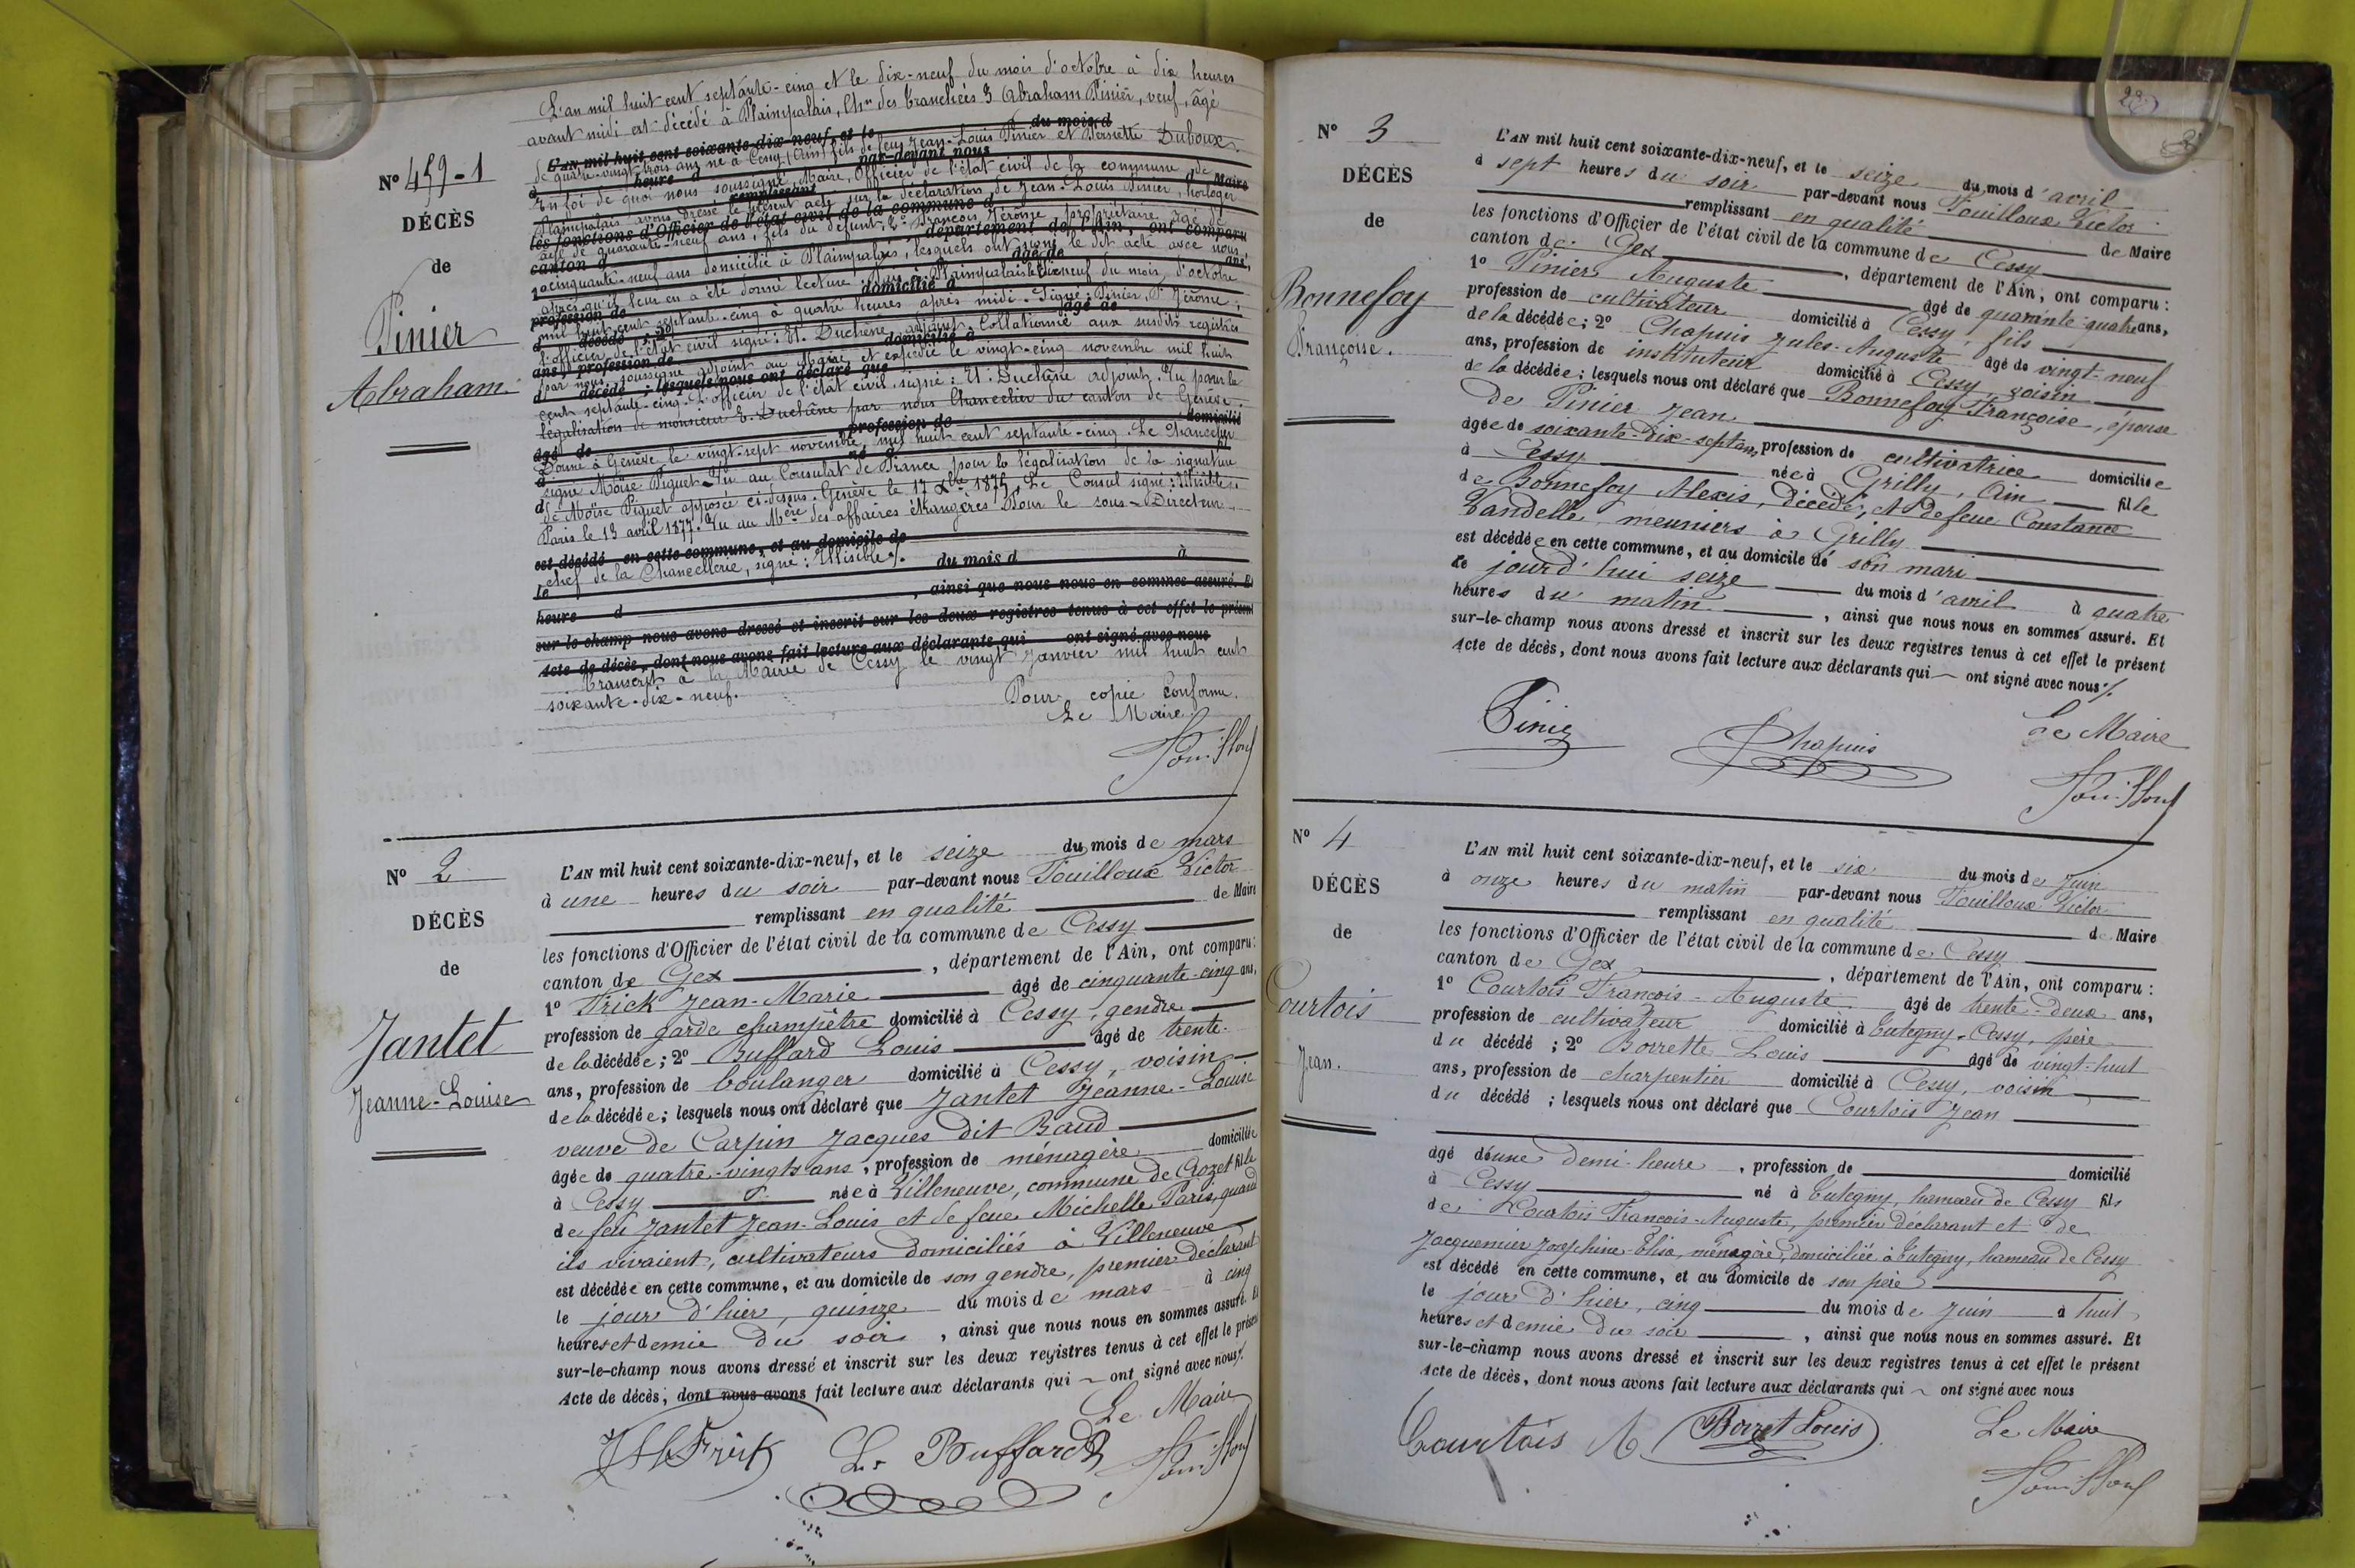 L'an mil huit cent septante-cinq et le dix-neuf du mois d'octobre à dix heures
avant midi est décédé à Plainpalais, Ch.n des Tranchées 3 Abraham Pinier, veuf, âgé
L'AN mil huit cent soixante-dix-neuf, et le du mois d
de quatre-vingt-trois ans, né à Cessy (Ain) fils de feu Jean-Louis Pinier et Pernette Duboux.
heure par-devant nous
En foi de quoi nous soussigné, Maire, Officier de l'état civil de la commune de
remplissant Maire
Plainpalais avons dressé le présent acte sur la déclaration de Jean-Louis Pinier, horloger
les fonctions d'Officier de l'état civil de la commune d
âgé de quarante-neuf ans, fils du défunt, 2° François Jérôme, propriétaire, âgé de
canton d département de l'Ain, ont comparu
cinquante-neuf ans domicilié à Plainpalais, lesquels ont signé le dit acte avec nous
1° âgé de ans,
après qu'il leur en a été donné lecture. Plainpalais le dix-neuf du mois d'octobre
profession de domicilié à
mil huit cent septante-cinq à quatre heures après midi. Signé: Pinier, F. Jérôme;
d décédé ; 2° âgé de
l'officier de l'état civil signé: Et. Duchêne, adjoint. Collationné aux susdits registres
ans, profession de domicilié à
par nous soussigné adjoint au Maire et expédié le vingt-cinq novembre mil huit
d décédé ; lesquels nous ont déclaré que
cent septante-cinq. L'officier de l'état civil, signé: Et. Duchêne adjoint. Vu pour la
légalisation de monsieur E. Duchêne par nous Chancelier du canton de Genève.
âgé de profession de domicilié
Donné à Genève le vingt-sept novembre, mil huit cent septante-cinq. Le Chancelier
à né à
signé Moïse Piguet. Vu au Consulat de France pour la légalisation de la signature
de Moïse Piguet apposée ci-dessus. Genève le 17 Xbre 1875. Le Consul signé: Illisible
Paris le 13 avril 1877. Vu au Mère des affaires étrangères Pour le sous-Directeur
est décédé en cette commune, et au domicile de
chef de la Chancellerie, signé: Illisible ./.
le du mois d à
heure d , ainsi que nous nous en sommes assuré. Et
sur-le-champ nous avons dressé et inscrit sur les deux registres tenus à cet effet le présent
Acte de décès, dont nous avons fait lecture aux déclarants qui ont signé avec nous
Transcrit à la Mairie de Cessy le vingt Janvier mil huit cent
soixante-dix-neuf.
Pour copie Conforme.
Le Maire.
N° 459-1
DÉCÈS
de
Pinier
Abraham
N° 2
DÉCÈS
de
Jantet
Jeanne-Louise
L'AN mil huit cent soixante-dix-neuf, et le seize du mois de mars
à une heures du soir par-devant nous Fouilloux Victor
remplissant en qualité de Maire
les fonctions d'Officier de l'état civil de la commune de Cessy
canton de Gex , département de l'Ain, ont comparu:
1° Frick Jean-Marie âgé de cinquante-cinq ans,
profession de garde champêtre domicilié à Cessy, gendre
de la décédée; 2° Buffard Louis âgé de trente-
ans, profession de boulanger domicilié à Cessy, voisin
de la décédée; lesquels nous ont déclaré que Jantet Jeanne-Louise
veuve de Carpin Jacques dit Baud
âgée de quatre-vingts ans, profession de ménagère domiciliée
à Cessy née à Villeneuve, commune de Crozet fille
de feu Jantet Jean-Louis et de feue Michelle Paris, quand
ils vivaient, cultivateurs domiciliés à Villeneuve
est décédée en cette commune, et au domicile de son gendre, premier déclarant
le jour d'hier, quinze du mois de mars à cinq
heures et demie du soir , ainsi que nous nous en sommes assuré. Et
sur-le-champ nous avons dressé et inscrit sur les deux registres tenus à cet effet le présent
Acte de décès, dont nous avons fait lecture aux déclarants qui ont signé avec nous./.
Le Maire
Frick L. Buffard
N° 3
DÉCÈS
de
Bonnefoy
Françoise.
L'AN mil huit cent soixante-dix-neuf, et le seize du mois d'avril
à sept heures du soir par-devant nous Fouilloux Victor
remplissant en qualité de Maire
les fonctions d'Officier de l'état civil de la commune de Cessy
canton de Gex , département de l'Ain, ont comparu:
1° Pinier Auguste âgé de quarante-quatre ans,
profession de cultivateur domicilié à Cessy, fils
de la décédée; 2° Chapuis Jules-Auguste âgé de vingt-neuf
ans, profession de instituteur domicilié à Cessy, voisin
de la décédée; lesquels nous ont déclaré que Bonnefoy Françoise, épouse
de Pinier Jean
âgée de soixante-dix-sept ans, profession de cultivatrice domiciliée
à Cessy née à Grilly, Ain fille
de Bonnefoy Alexis, décédé, et de feue Constance
Vandelle, meuniers à Grilly
est décédée en cette commune, et au domicile de son mari
le jourd'hui seize du mois d'avril à quatre
heures du matin , ainsi que nous nous en sommes assuré. Et
sur-le-champ nous avons dressé et inscrit sur les deux registres tenus à cet effet le présent
Acte de décès, dont nous avons fait lecture aux déclarants qui ont signé avec nous./.
Pinier Chapuis Le Maire
N° 4
DÉCÈS
de
Courtois
Jean.
L'AN mil huit cent soixante-dix-neuf, et le six du mois de Juin
à onze heures du matin par-devant nous Fouilloux Victor
remplissant en qualité de Maire
les fonctions d'Officier de l'état civil de la commune de Cessy
canton de Gex , département de l'Ain, ont comparu:
1° Courtois François-Auguste âgé de trente-deux ans,
profession de cultivateur domicilié à Tutegny-Cessy, père
du décédé ; 2° Borrette Louis âgé de vingt-huit
ans, profession de charpentier domicilié à Cessy, voisin
du décédé ; lesquels nous ont déclaré que Courtois Jean
âgé d'une demi-heure , profession de domicilié
à Cessy né à Tutegny, hameau de Cessy fils
de Courtois François-Auguste, premier déclarant et de
Jacquemier Joséphine-Elisa, ménagère, domiciliée à Tutegny, hameau de Cessy
est décédé en cette commune, et au domicile de son père
le jour d'hier, cinq du mois de Juin à huit
heures et demie du soir , ainsi que nous nous en sommes assuré. Et
sur-le-champ nous avons dressé et inscrit sur les deux registres tenus à cet effet le présent
Acte de décès, dont nous avons fait lecture aux déclarants qui ont signé avec nous
Courtois A. Borret Louis Le Maire